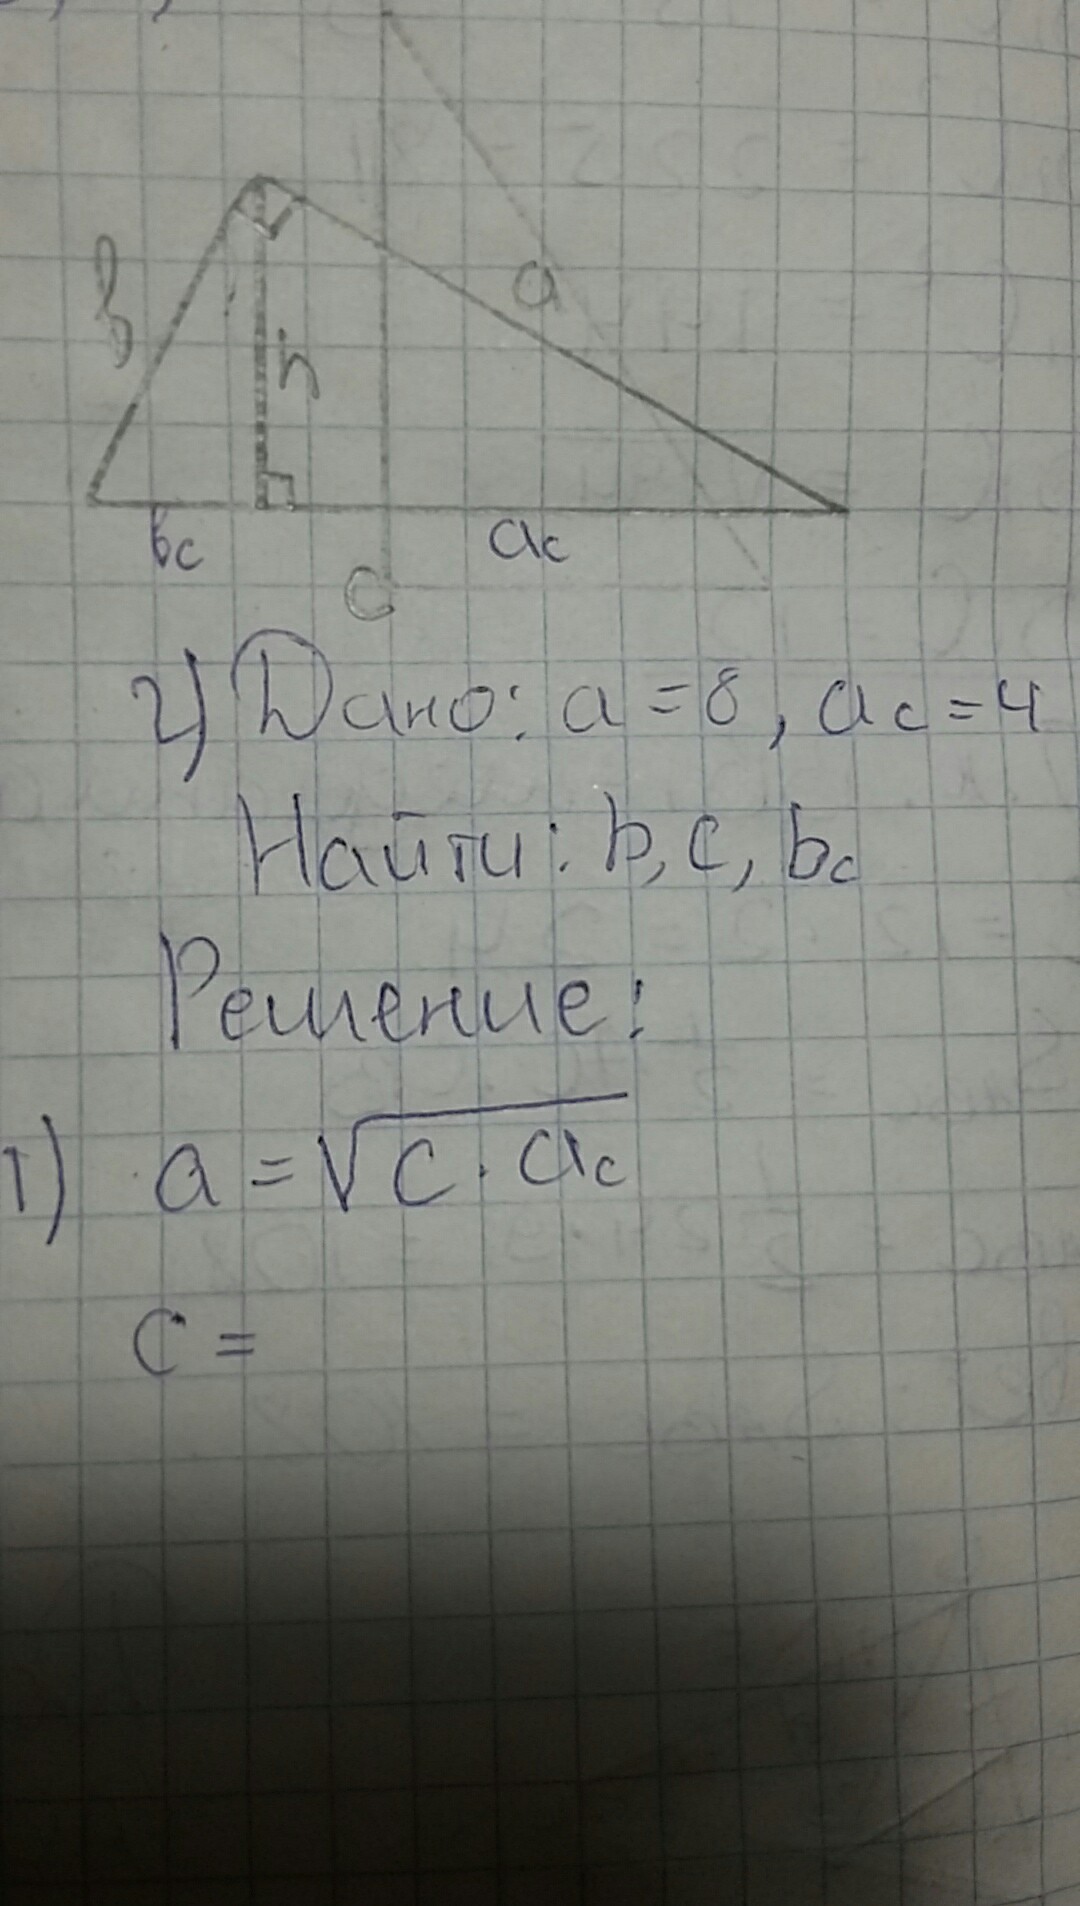 b
a
h
bc
ac
c
2) Дано: a = 8, ac = 4
Найти: b, c, bc
Решение:
1) a = √c · ac
c =